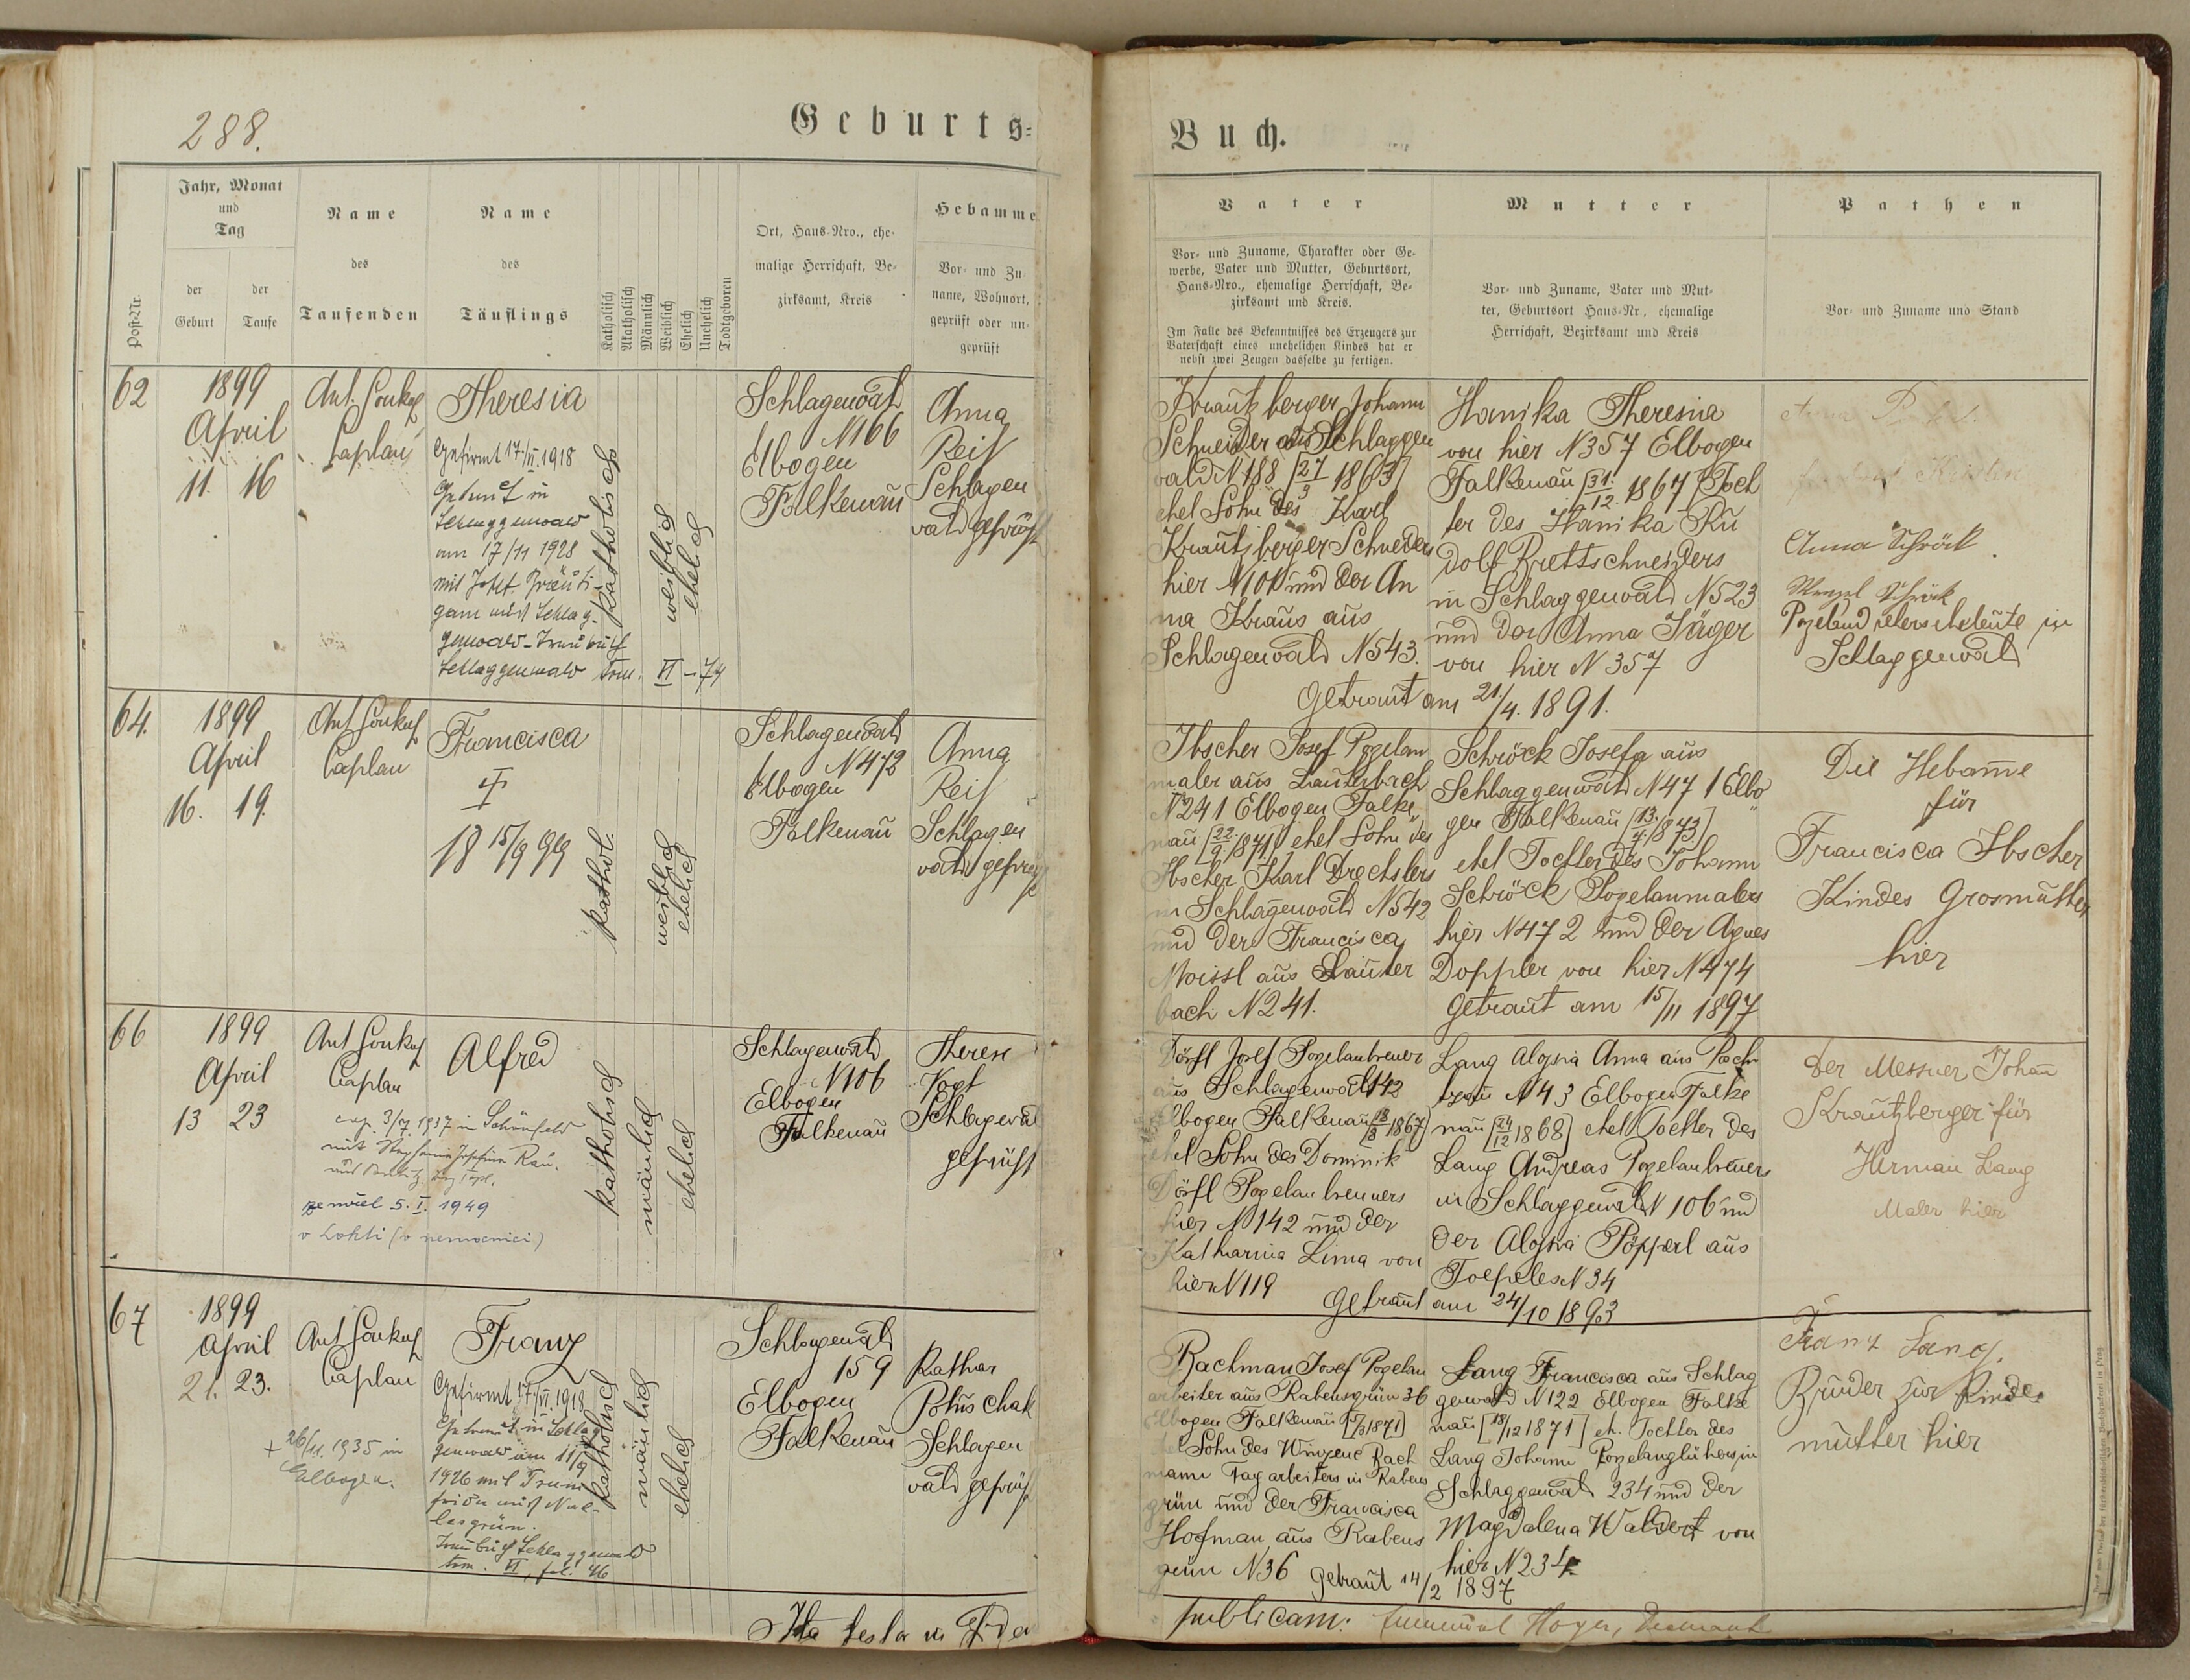 288.
Geburts=
Buch.
Post-Nr.
Jahr, Monat
und
Tag
der
Geburt
der
Taufe
Name
des
Taufenden
Name
des
Täuflings
Katholisch
Akatholisch
Männlich
Weiblich
Ehelich
Unehelich
Todtgeboren
Ort, Haus-Nro., ehe-
malige Herrschaft, Be-
zirksamt, Kreis
Hebamme
Vor- und Zu-
name, Wohnort,
geprüft oder un-
geprüft
Vater
Vor- und Zuname, Charakter oder Ge-
werbe, Vater und Mutter, Geburtsort,
Haus-Nro., ehemalige Herrschaft, Be-
zirksamt und Kreis.
Im Falle des Bekenntnisses des Erzeugers zur
Vaterschaft eines unehelichen Kindes hat er
nebst zwei Zeugen dasselbe zu fertigen.
Mutter
Vor- und Zuname, Vater und Mut-
ter, Geburtsort Haus-Nr., ehemalige
Herrschaft, Bezirksamt und Kreis
Pathen
Vor- und Zuname und Stand
62
1899
April
11. 16
Ant.
Caplan
Theresia
Gefirmt 17./VI. 1918
Getraut in
Schlaggenwald
am 17/11 1928
mit Josef Bräuti-
gam aus Schlag-
genwald - Traubuch
Schlaggenwald tom. VI - 74
katholisch
weiblich
ehelich
Schlagenwald
N 166
Elbogen
Falkenau
Anna
Reif
Schlagen
wald geprüft
Krautzberger Johann
Schneider aus Schlaggen
wald N 188 [27/3 1863]
ehel Sohn des Karl
Krautzberger Schneiders
hier N 101 und der An
na Kraus aus
Schlagenwald N 543.
Hanika Theresia
von hier N 357 Elbogen
Falkenau [31./12. 1867] Toch
ter des Hanika Ru
dolf Brettschneiders
in Schlaggenwald N 523
und der Anna Jäger
von hier N 357
Getraut am 21./4. 1891.
Anna Schröck
Wenzel Schröck
in
Schlaggenwald
64.
1899
April
16. 19.
Ant
Caplan
Francisca
18 15/9 99
kathol.
weiblich
ehelich
Schlagenwald
N 472
Elbogen
Falkenau
Anna
Reif
Schlagen
wald geprüft
Ibscher Josef Pozelan
maler aus Lauterbach
N 241 Elbogen Falke
nau [22./9. 1871] ehel Sohn des
Ibscher Karl Drechslers
in Schlagenwald N 542
und der Francisca
Moissl aus Lauter
bach N 241.
Schröck Josefa aus
Schlaggenwald N 471 Elbo
gen Falkenau [13./4. 1873]
ehel Tochter des Johann
Schröck Pozelanmalers
hier N 472 und der Agnes
Doppler von hier N 474
Getraut am 15/11 1897
Die Hebame
für
Francisca Ibscher
Kindes Grosmutter
hier
66
1899
April
13 23
Ant
Caplan
Alfred
cop. 3/7. 1937 in Schönfeld
mit Stephanie Josefine
zemřel 5. I. 1949
v Lokti (v nemocnici)
katholisch
mänlich
ehelich
Schlagenwald
N 106
Elbogen
Falkenau
Therese
Vogt
Schlagewald
geprüft
Dörfl Josef Pozelanbrenner
aus Schlagenwald 142
Elbogen Falkenau [18/3 1867]
ehel Sohn des Dominik
Dörfl Pozelanbrenners
hier N 142 und der
Katharina Lima von
hier N 119
Lang Aloysia Anna aus
N 43 Elbogen Falke
nau [24/12 1868] ehel Tochter des
Lang Andreas Pozelanbrenners
in Schlaggenwald N 106 und
der Aloysia Pöpperl aus
Toepeles N 34
Getraut am 24/10 1893
Der Messner Johann
Krautzberger für
Herman Lang
Maler hier
67
1899
April
21. 23.
+ 26/11. 1935 in
Elbogen.
Ant
Caplan
Franz
Gefirmt 17./VI. 1918
Getraut in Schlag
genwald am 11/9
1926 mit
aus
lesgrün.
Traubuch Schlaggenwald
tom. VI, fol. 46
katholisch
mänlich
ehelich
Schlagenwald
159
Elbogen
Falkenau
Kathar
Potuschak
Schlagen
wald geprüft
Rachman Josef Pozelan
arbeiter aus Rabensgrün 36
Elbogen Falkenau
Sohn des Winzenz Rach
mann Tagarbeiters in Rabens
grün und der Francisca
Hofman aus Rabens
grün N 36
Lang Francisca aus Schlag
genwald N 122 Elbogen Falke
nau [18/12 1871] eh. Tochter des
Lang Johann Pozelanglühers in
Schlaggenwald 234 und der
Magdalena Waldert von
hier N 234
Getraut 14/2 1897
Franz Lang.
Bruder zur Kindes
mutter hier
Ita testor in Fidem
publicam: Emmanuel Hoyer, Dechant